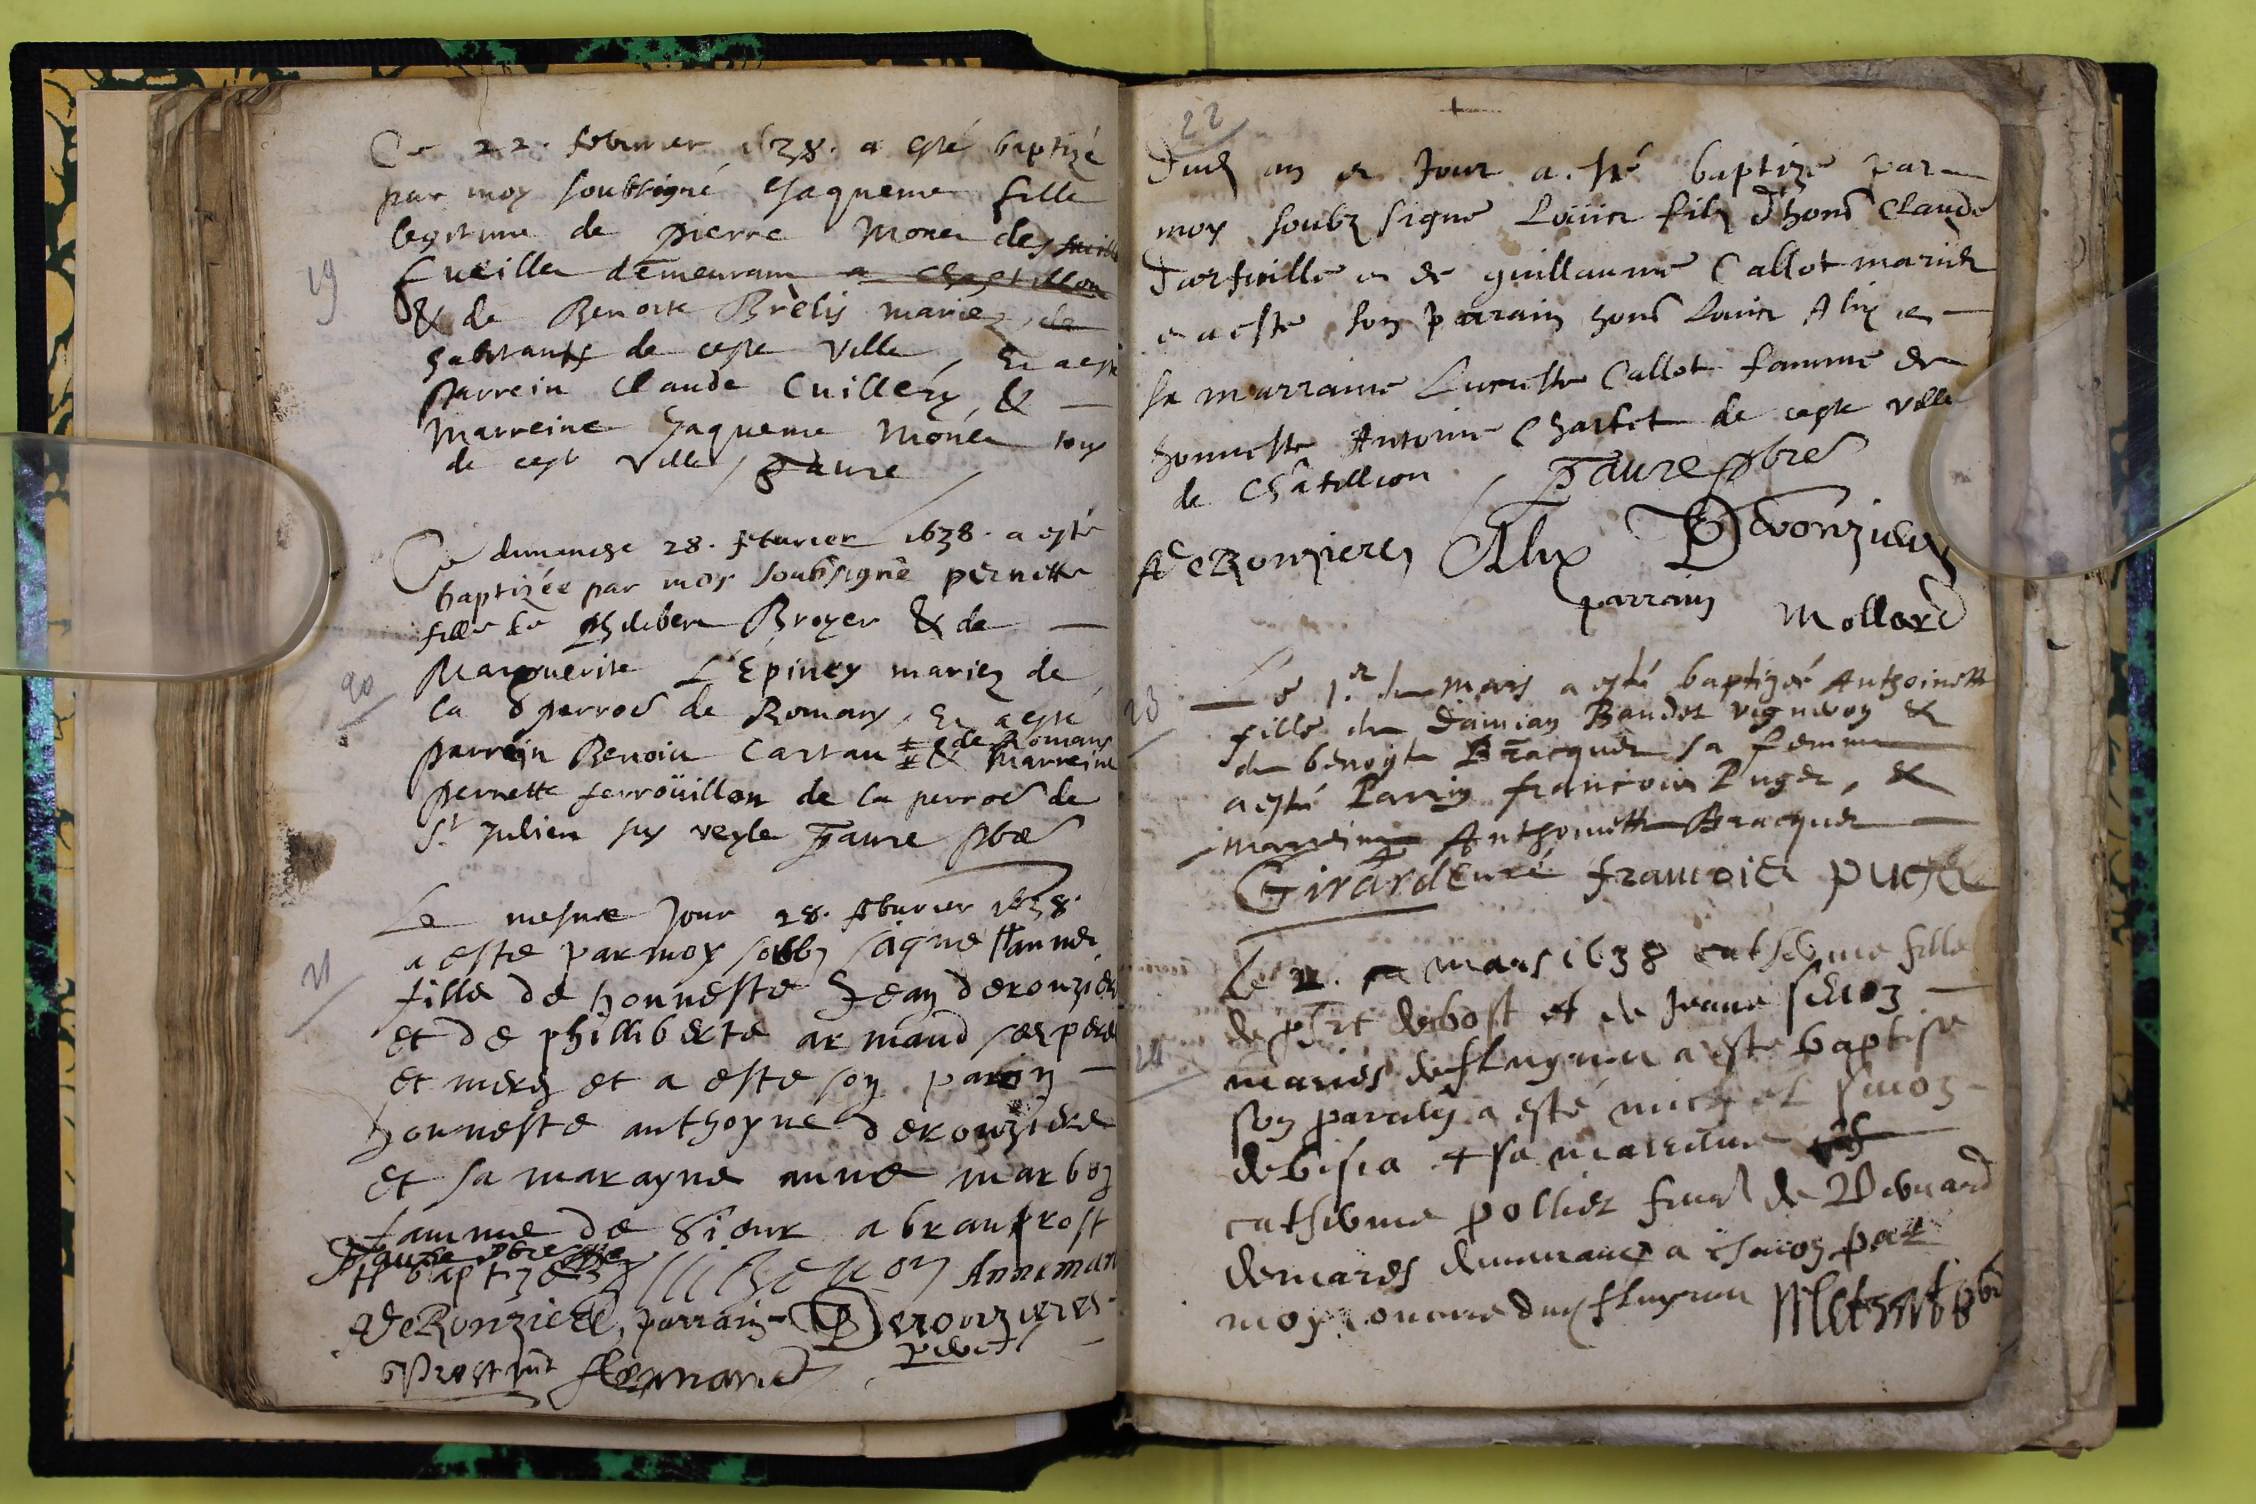 Ce 22. febvrier 1638. a esté baptizé
par moy soubsigné Jaqueme fille
legitime de pierre Monet des
fueilles demeurant a Chastillon
& de Benoite Brelis mariez de
habitants de ceste ville, Et a esté
Parrein Claude Cuillery &
Marreine Jaqueme Monet tous
de cest ville / Faure
19
Ce dimanche 28. febvrier 1638. a esté
baptizée par moy soubsigné pernette
fille de Philibert Broyer & de
Marguerite L'Epiney mariez de
la perroë de Romans, Et a esté
parrein Benoict Cartau de Romans & Marreine
pernette ferroüillon de la perroë de
St Julien sus veyle Faure pbre
20
Le mesme Jour 28. febvrier 1638.
a este par moy soubz signe # anne
fille de honneste Jean derouziere
et de philliberte armaud ses pere
et mere et a este son parin
honneste anthoyne derouziere
et sa marayne anne marboz
famme de Sieur abran prost
Faure pbre
# baptizée Anne mar
DeRonziere, parrain Derouzieres
Prost
21
22
Dud an et Jour a esté baptizé par
moy soubz signe Louis filz d'hons Claude
Dartuille et de guillaume Callot mariez
et a esté son parrain hons Louis Alix et
sa marraine Lucresse Callot famme de
honneste Antoine Charlet de ceste ville
de Châtillion / Faure pbre
DeRonzieres Alix
parrain Mollard
Le 1.er du mars a esté baptizée Anthoinette
fille de Damian Baudet vigneron &
de benoyte Bracquet sa femme
a esté Parrin francois Puget, &
marreine Anthoinette Bracquet
Girard curé francois puget
23
Le 2. mars 1638 catherine fille
de debost et de Jeane
mariés de fleyrieu a esté baptisé
son parain a esté michel
de bisia & sa mareine
catherine pollier fem de Benard
demares demeurant a par
moy cure dud fleyrieu
24